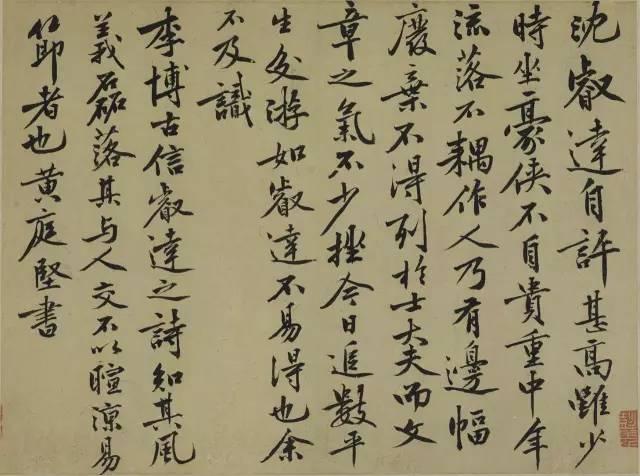 沈叡達自評甚高雖少
時坐豪俠不自貴重中年
流落不耦作人乃有邊幅
廢棄不得列於士大夫而文
章之氣不少挫今日追數平
生交游如叡達不易得也余
不及識
李博古信叡達之詩知其風
義磊落其与人交不以暄涼易
節者也黃庭堅書